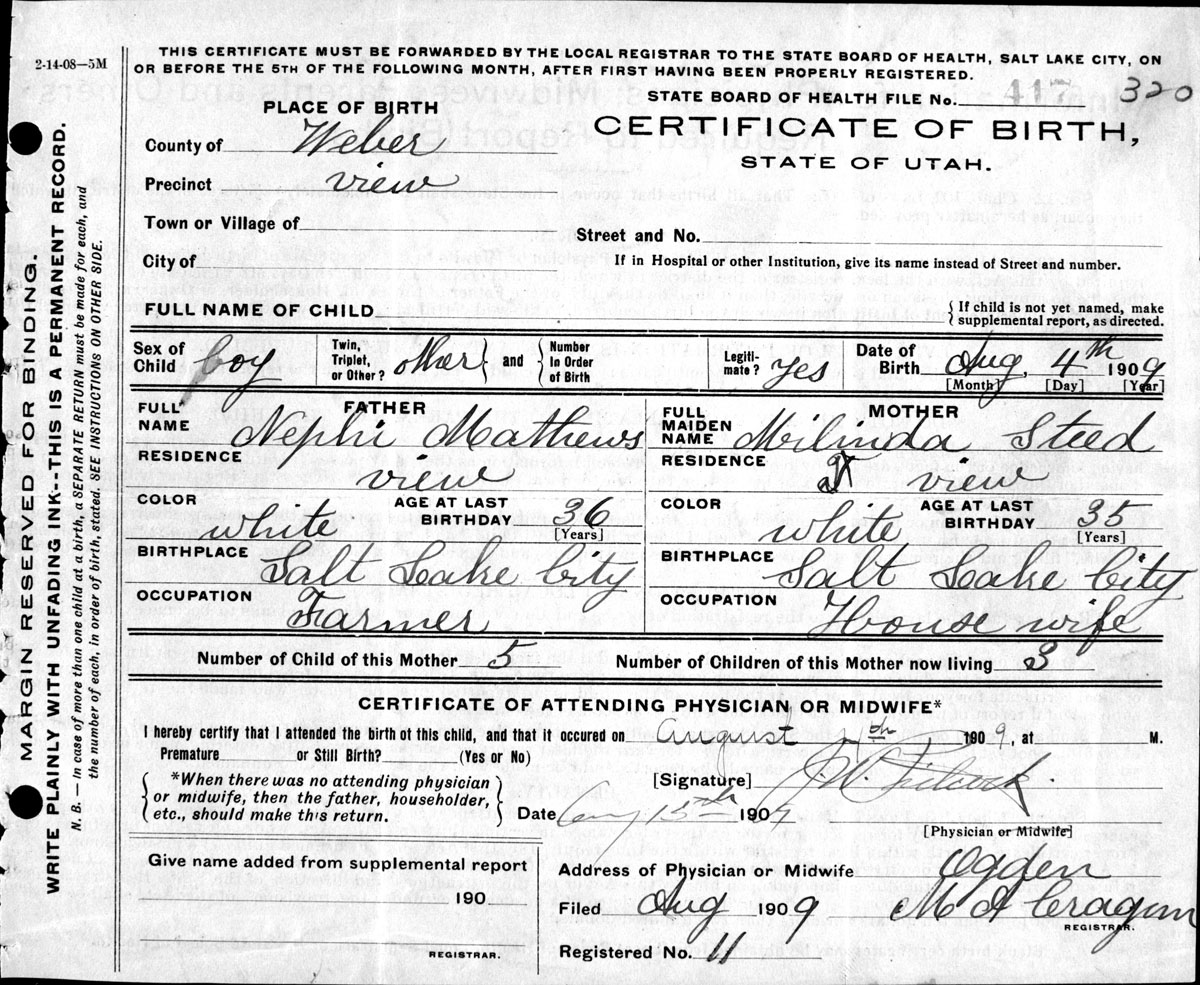 2-14-08—5M
THIS CERTIFICATE MUST BE FORWARDED BY THE LOCAL REGISTRAR TO THE STATE BOARD OF HEALTH, SALT LAKE CITY, ON
OR BEFORE THE 5TH OF THE FOLLOWING MONTH, AFTER FIRST HAVING BEEN PROPERLY REGISTERED.
STATE BOARD OF HEALTH FILE No. 417 320
PLACE OF BIRTH
CERTIFICATE OF BIRTH,
STATE OF UTAH.
County of Weber
Precinct view
Town or Village of
Street and No.
City of
If in Hospital or other Institution, give its name instead of Street and number.
FULL NAME OF CHILD
{ If child is not yet named, make
supplemental report, as directed.
Sex of Child boy
Twin, Triplet, or Other? other } and { Number In Order of Birth
Legiti- mate? Yes
Date of Birth Aug, 4th 1909
[Month] [Day] [Year]
FATHER
FULL NAME Nephi Mathews
RESIDENCE view
COLOR white
AGE AT LAST BIRTHDAY 36
[Years]
BIRTHPLACE Salt Lake City
OCCUPATION Farmer
MOTHER
FULL MAIDEN NAME Milinda Steed
RESIDENCE view
COLOR white
AGE AT LAST BIRTHDAY 35
[Years]
BIRTHPLACE Salt Lake City
OCCUPATION House wife
Number of Child of this Mother 5
Number of Children of this Mother now living 3
CERTIFICATE OF ATTENDING PHYSICIAN OR MIDWIFE*
I hereby certify that I attended the birth of this child, and that it occured on August 4th 1909, at M.
Premature or Still Birth? (Yes or No)
{ *When there was no attending physician
or midwife, then the father, householder,
etc., should make this return. }
[Signature]
Date 13th 1909
[Physician or Midwife]
Give name added from supplemental report
190
REGISTRAR.
Address of Physician or Midwife Ogden
Filed Aug 1909 M A Cragun
REGISTRAR.
Registered No. 11
MARGIN RESERVED FOR BINDING.
WRITE PLAINLY WITH UNFADING INK--THIS IS A PERMANENT RECORD.
N. B. — In case of more than one child at a birth, a SEPARATE RETURN must be made for each, and
the number of each, in order of birth, stated. SEE INSTRUCTIONS ON OTHER SIDE.